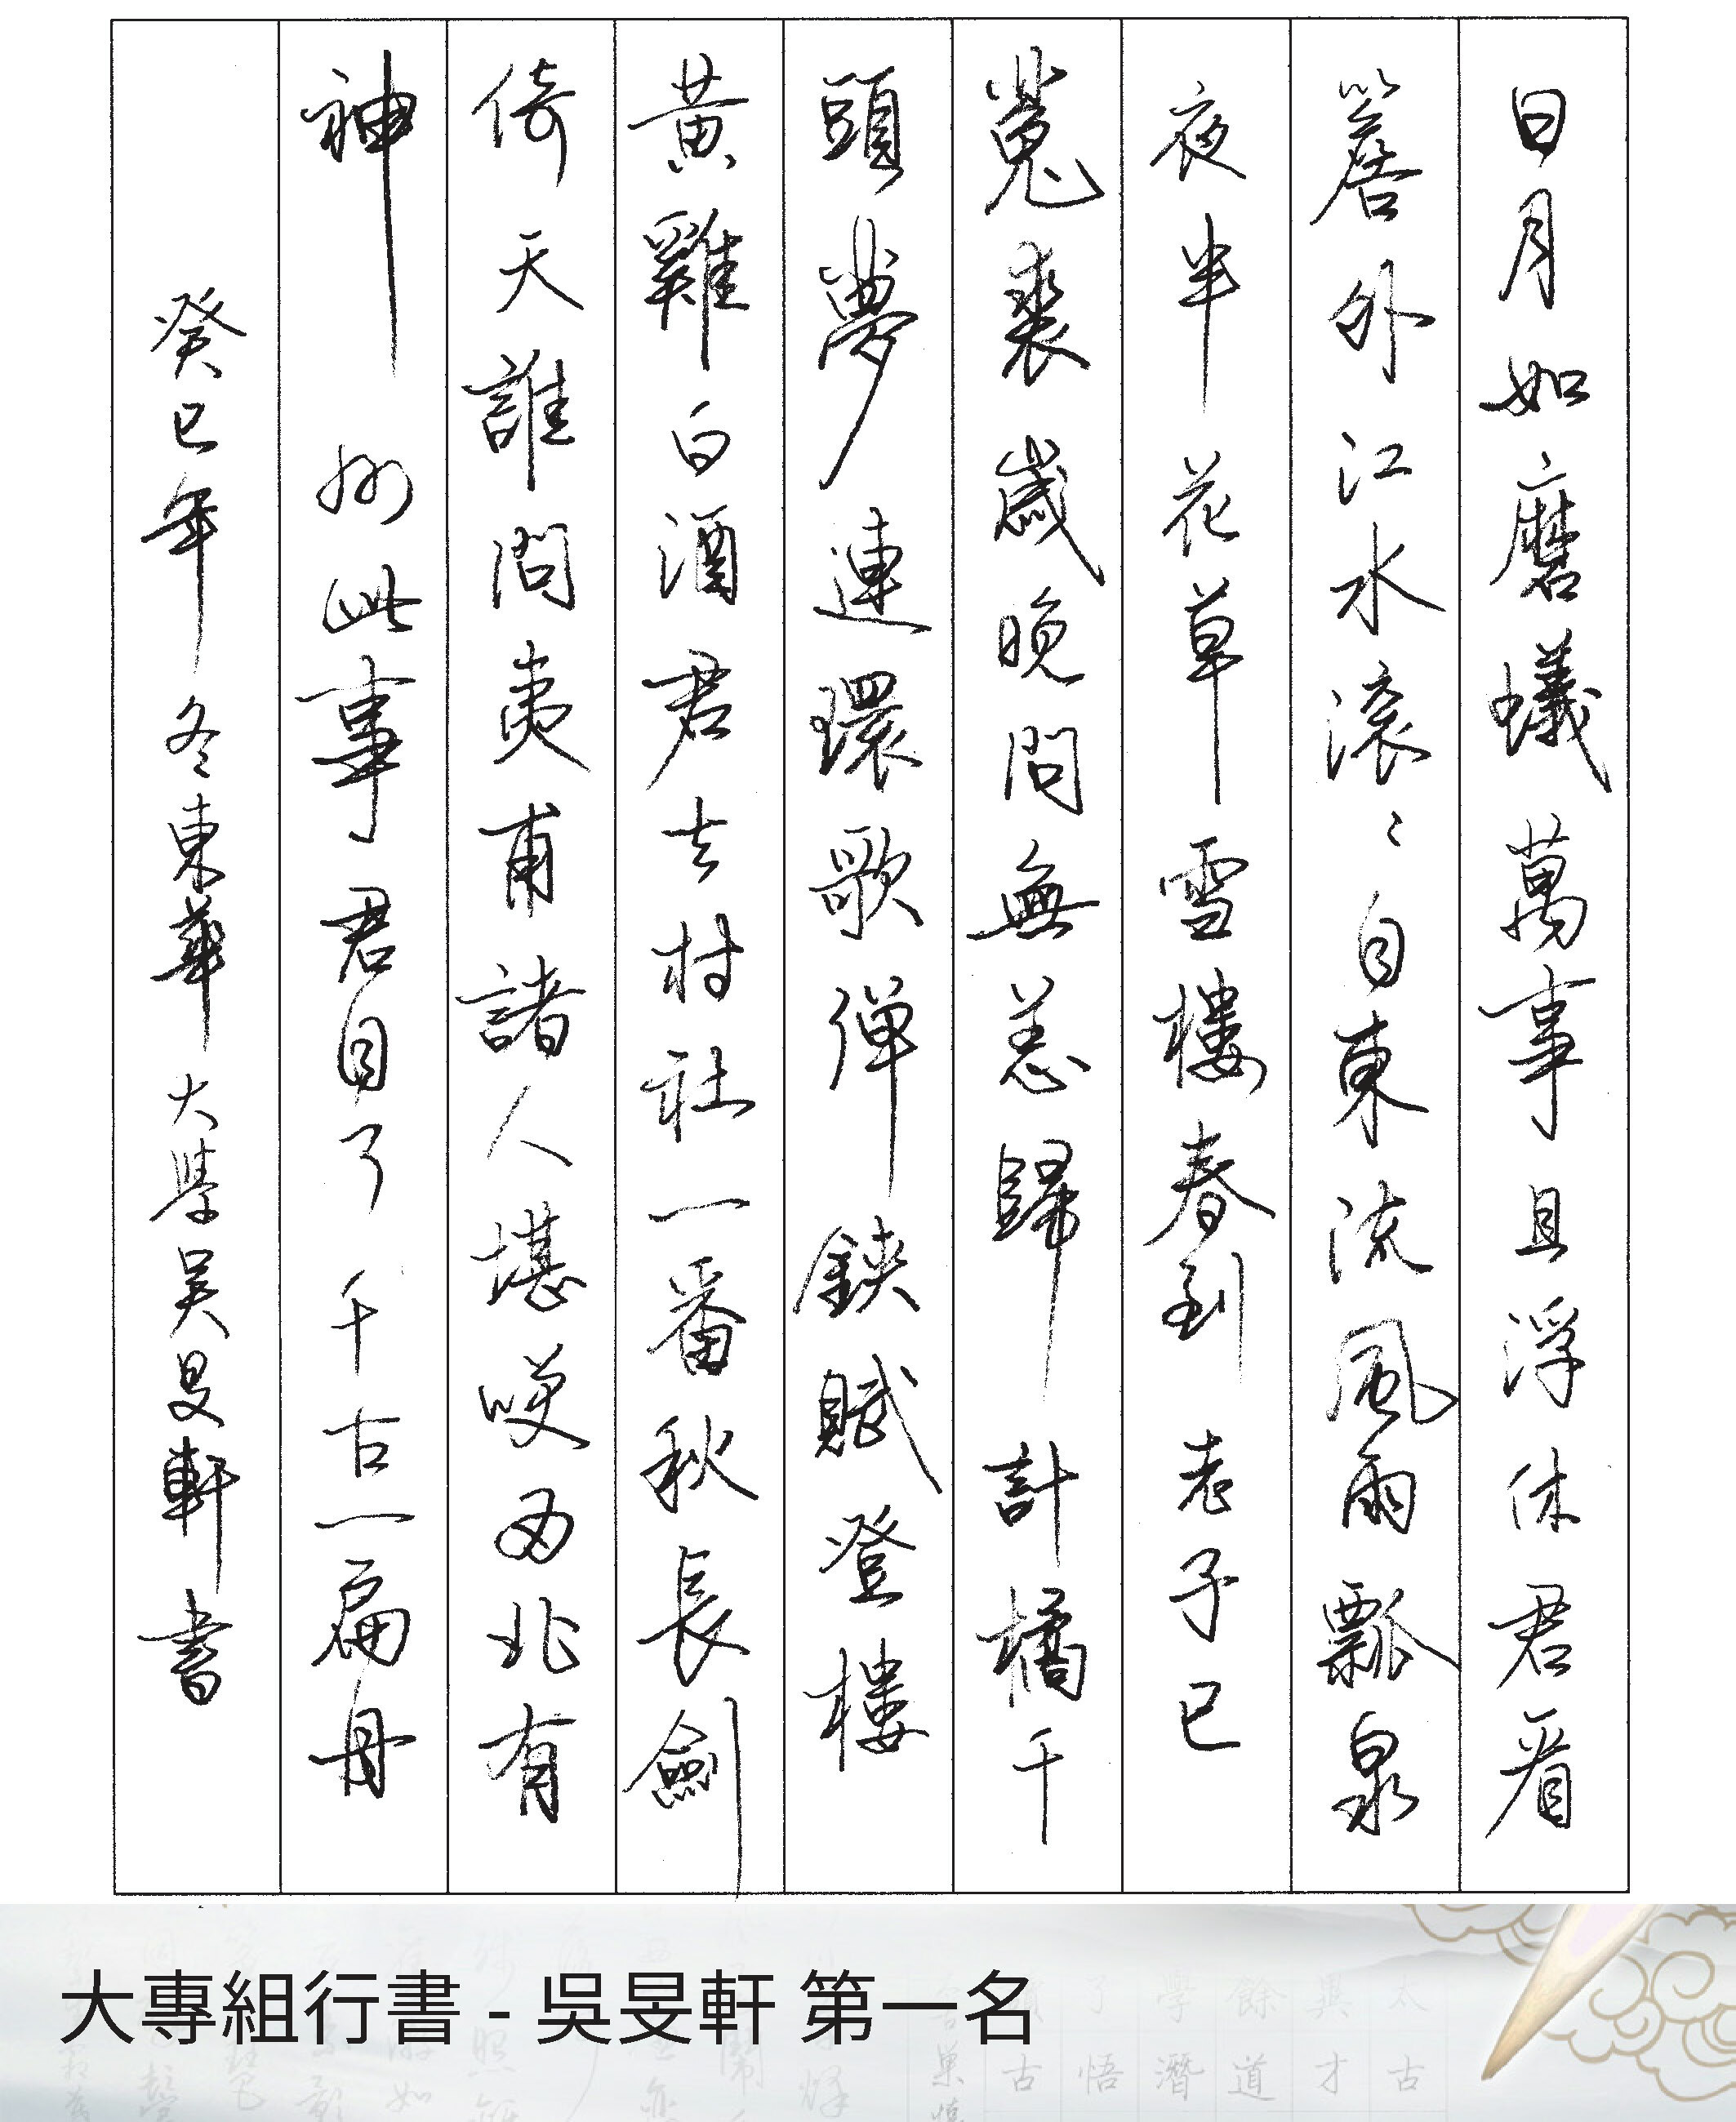 日月如磨蟻萬事且浮休君看
簷外江水滾〻自東流風雨瓢泉
夜半花草雪樓春到老子已
菟裘歲晚問無恙歸計橘千
頭夢連環歌彈鋏賦登樓
黃雞白酒君去村社一番秋長劍
倚天誰問夷甫諸人堪咲西北有
神州此事君自了千古一扁舟
癸巳年冬東華大學吳旻軒書
大專組行書 - 吳旻軒 第一名